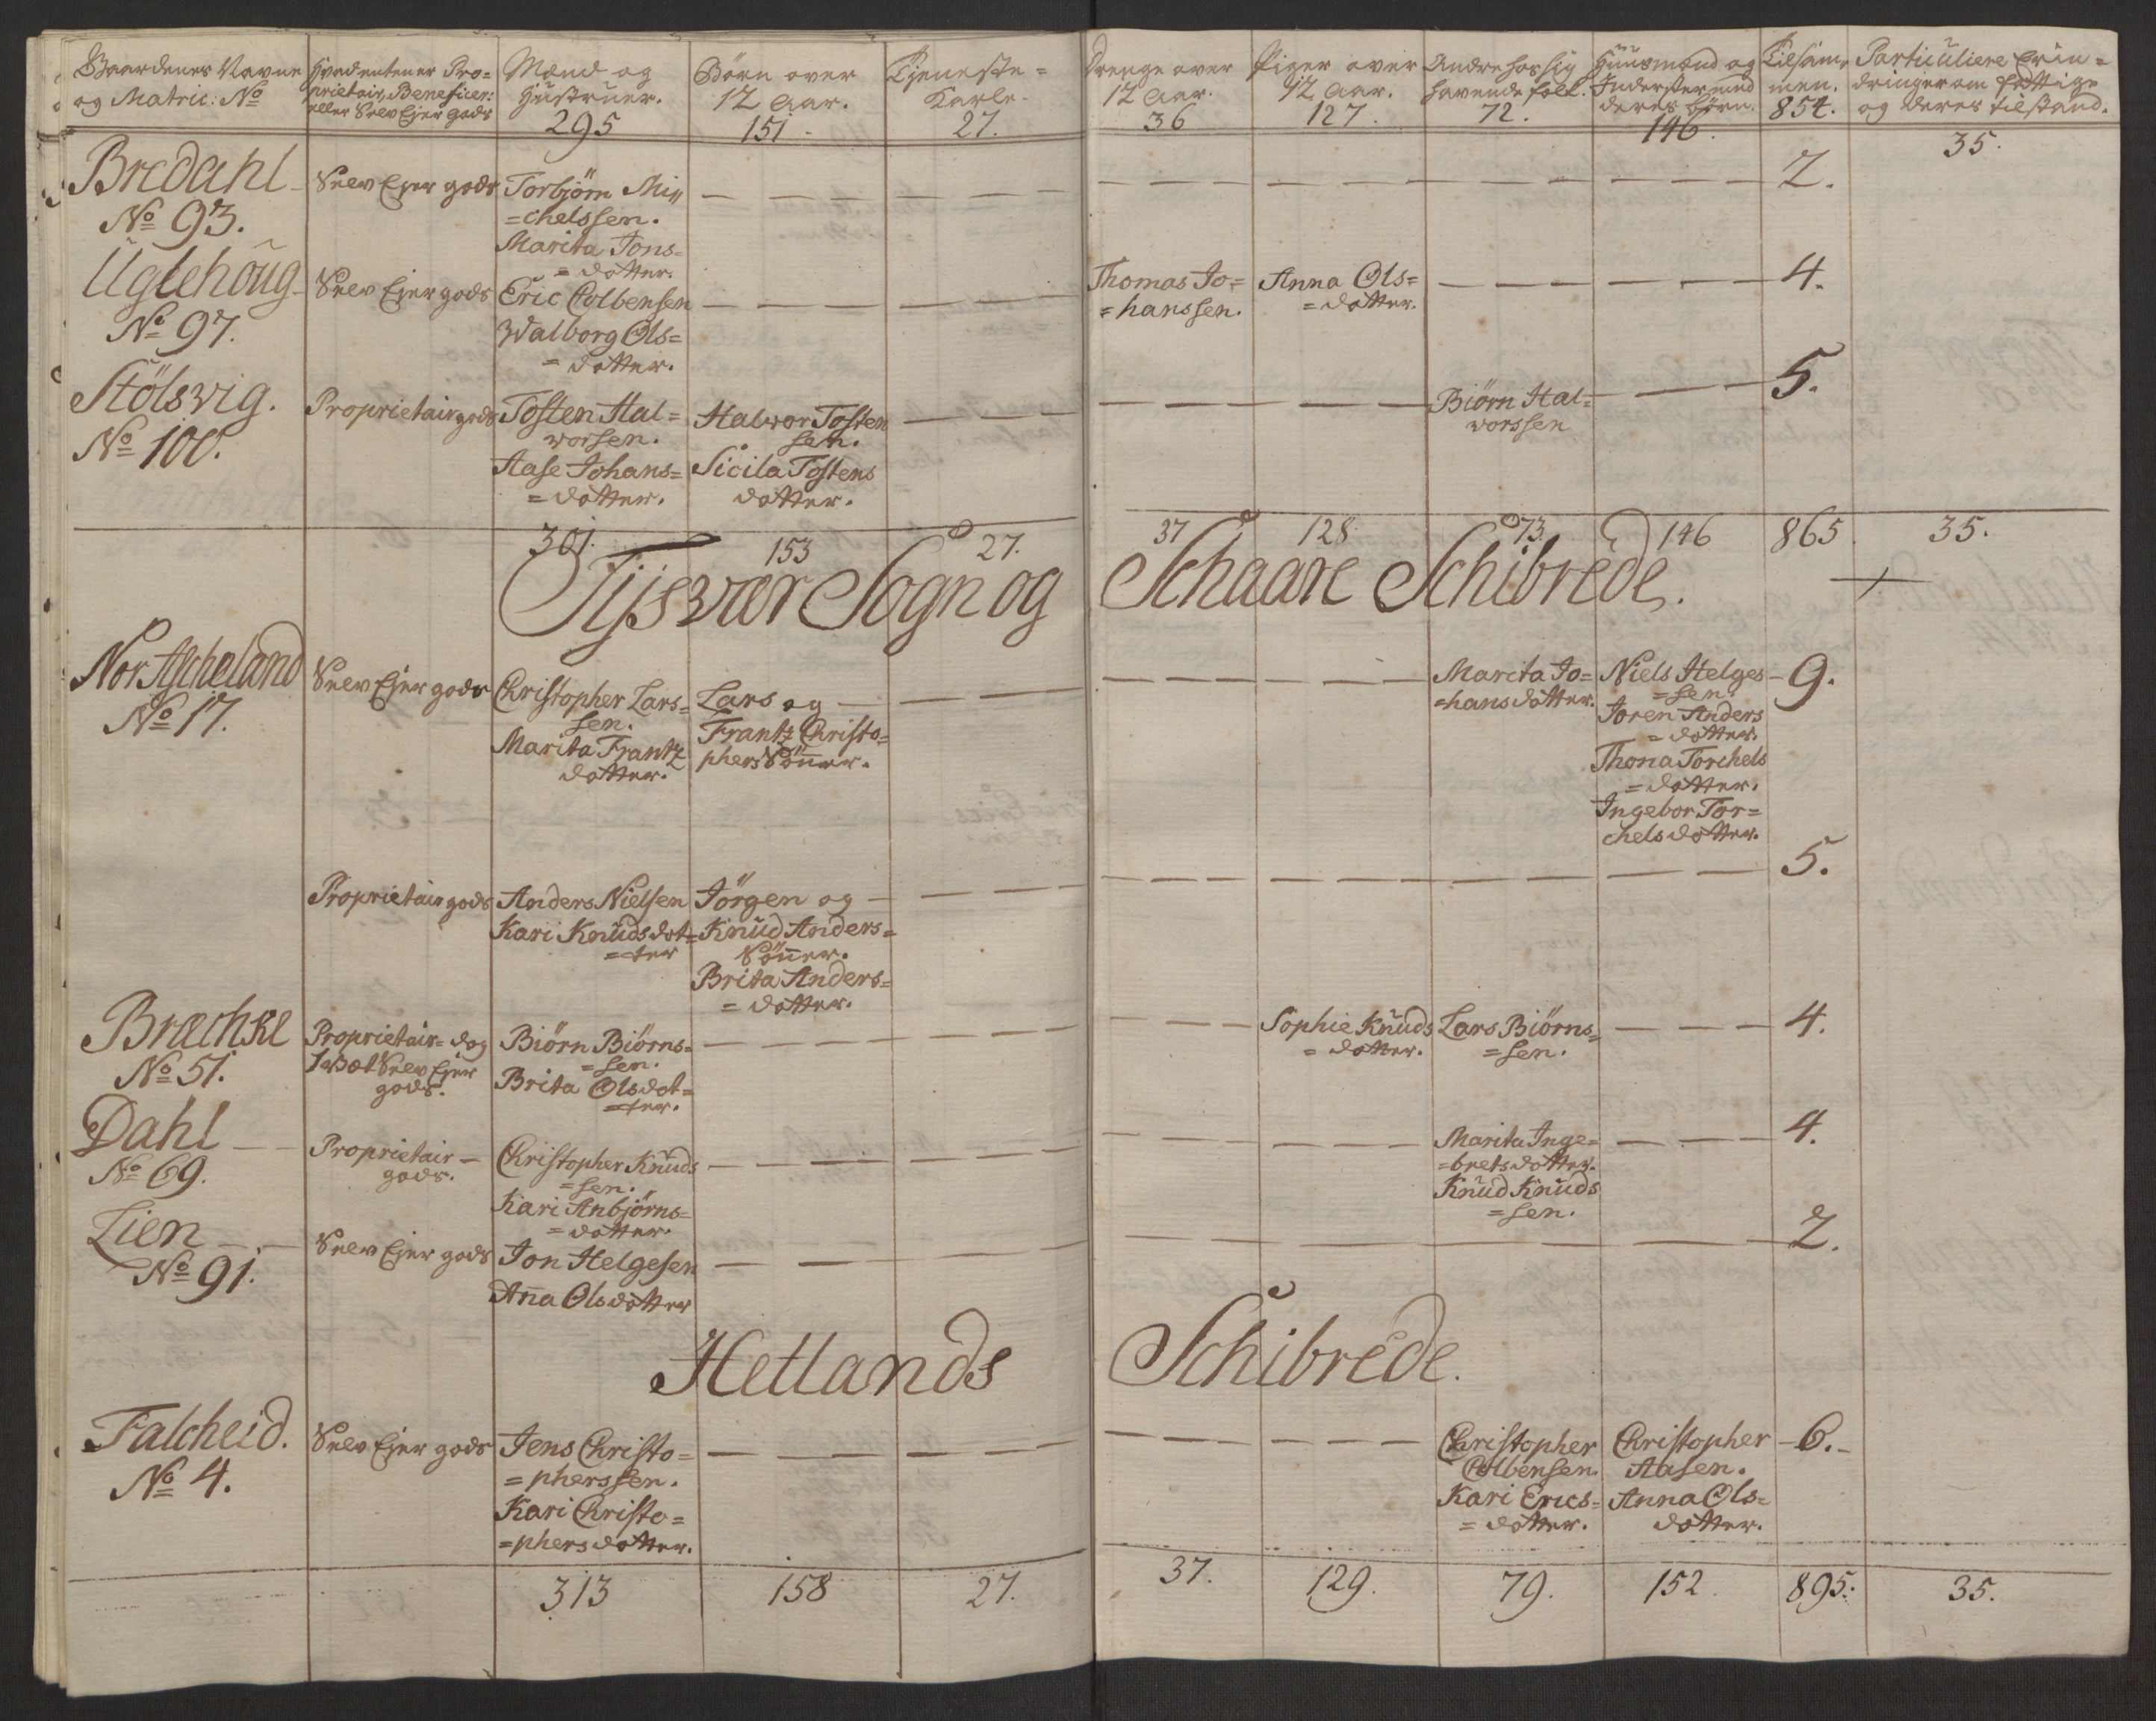 Gaardenes Navne
og Matric: No
Hvad enten er Pro=
prietair, Beneficer:
eller Selv Ejer gods
Mænd og
Hustruer.
295
Börn over
12 Aar.
151
Tieneste=
Karle.
27.
Drenge over
12 Aar.
36
Piger over
12 Aar.
127.
Andre hos sig
havende folk.
72.
Huusmænd og
Inderster med
deres börn.
146.
Tilsam-
men.
854.
Particuliere Erin=
dringer om fattige
og deres tilstand.
35.
Bredahl
No 93.
Selv Ejer gods
Torbjörn Mi=
=chelssen.
Marita Jons=
=dotter.
2.
Uglehoug
No 97.
Selv Ejer gods
Eric Colbensen
Walborg Ols=
=dotter.
Thomas Jo=
=hanssen.
Anna Ols=
=dotter.
4.
Stölsvig.
No 100.
Proprietair gods
Tosten Hal=
worsen.
Aase Johans=
=dotter.
Halvor Tosten
sen.
Sicila Tostens
dotter.
Biörn Hal=
worssen
5.
301.
153
27.
37
128
73.
146
865.
35.
Tysvær Sogn og Schaare Schibrede.
Nor Ascheland
No 17.
Selv Ejer gods
Christopher Lars=
sen.
Marita Frantz
dotter.
Lars og
Frantz Christo=
phers Sönner.
Marita Jo=
=hans dotter.
Niels Helges
=sen
Joren Anders
=dotter.
Thona Torchels
=dotter.
Ingebor Tor=
chels dotter.
9.
Proprietair gods
Anders Nielsen
Kari Knuds dot=
=ter
Jörgen og
Knud Anders=
Sönner.
Brita Anders=
=dotter.
5.
Brechke
No 51.
Proprietair= dog
Selv Ejer
gods.
Biörn Biörns=
=sen.
Brita Ols dot=
=ter.
Sophie Knuds
=dotter.
Lars Biörns=
=sen.
4.
Dahl
No 69.
Proprietair
gods.
Christopher Knuds
=sen.
Kari Anbjörns=
=dotter.
Marita Inge=
=brets dotter.
Knud Knuds
=sen.
4.
Lien
No 91.
Selv Ejer gods
Jon Helgesen
Anna Ols dotter
2.
Hetlands Schibrede.
Falcheid.
No 4.
Selv Ejer gods
Jens Christo=
=pherssen.
Kari Christo=
=phers dotter.
Christopher
Colbensen.
Kari Erics=
=dotter.
Christopher
Aasen.
Anna Ols=
dotter.
6.
313
158
27.
37.
129.
79.
152.
895.
35.